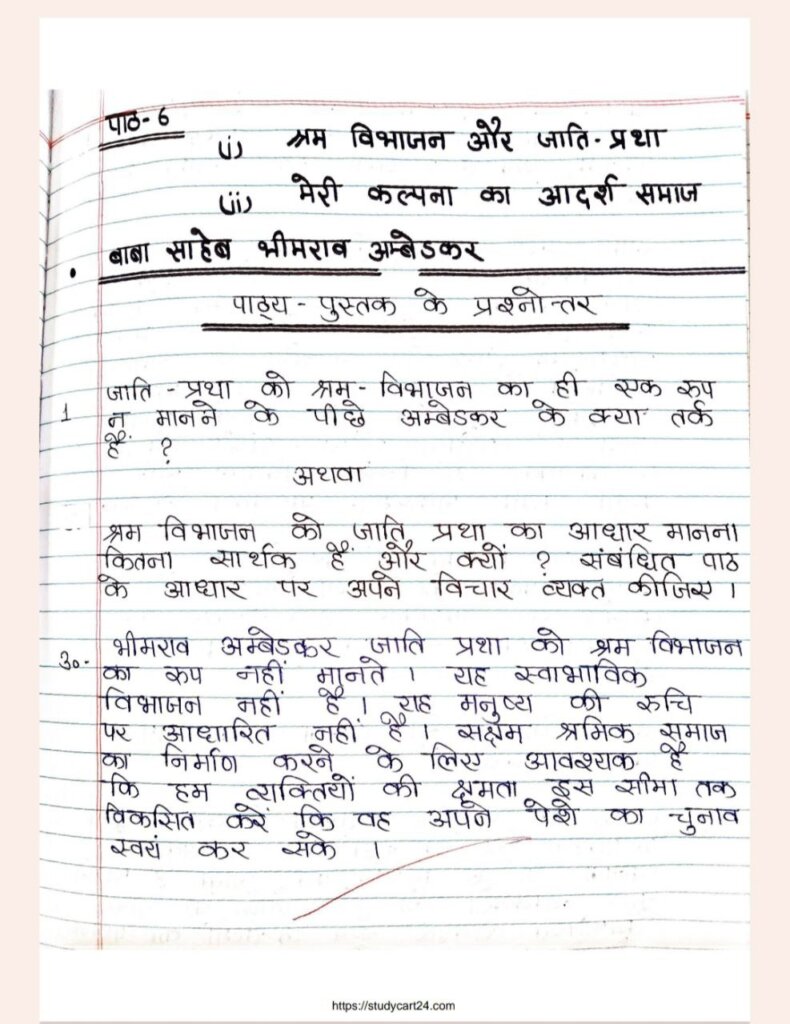 पाठ-6
(i) श्रम विभाजन और जाति-प्रथा
(ii) मेरी कल्पना का आदर्श समाज
• बाबा साहेब भीमराव अम्बेडकर
पाठ्य-पुस्तक के प्रश्नोत्तर
जाति-प्रथा को श्रम-विभाजन का ही एक रुप
1 न मानने के पीछे अम्बेडकर के क्या तर्क
हैं ?
अथवा
श्रम विभाजन को जाति प्रथा का आधार मानना
कितना सार्थक हैं और क्यों ? संबंधित पाठ
के आधार पर अपने विचार व्यक्त कीजिए ।
उ०- भीमराव अम्बेडकर जाति प्रथा को श्रम विभाजन
का रुप नहीं मानते । यह स्वाभाविक
विभाजन नहीं है । यह मनुष्य की रुचि
पर आधारित नहीं है । सक्षम श्रमिक समाज
का निर्माण करने के लिए आवश्यक है
कि हम व्यक्तियों की क्षमता इस सीमा तक
विकसित करें कि वह अपने पेशे का चुनाव
स्वयं कर सके ।
https://studycart24.com